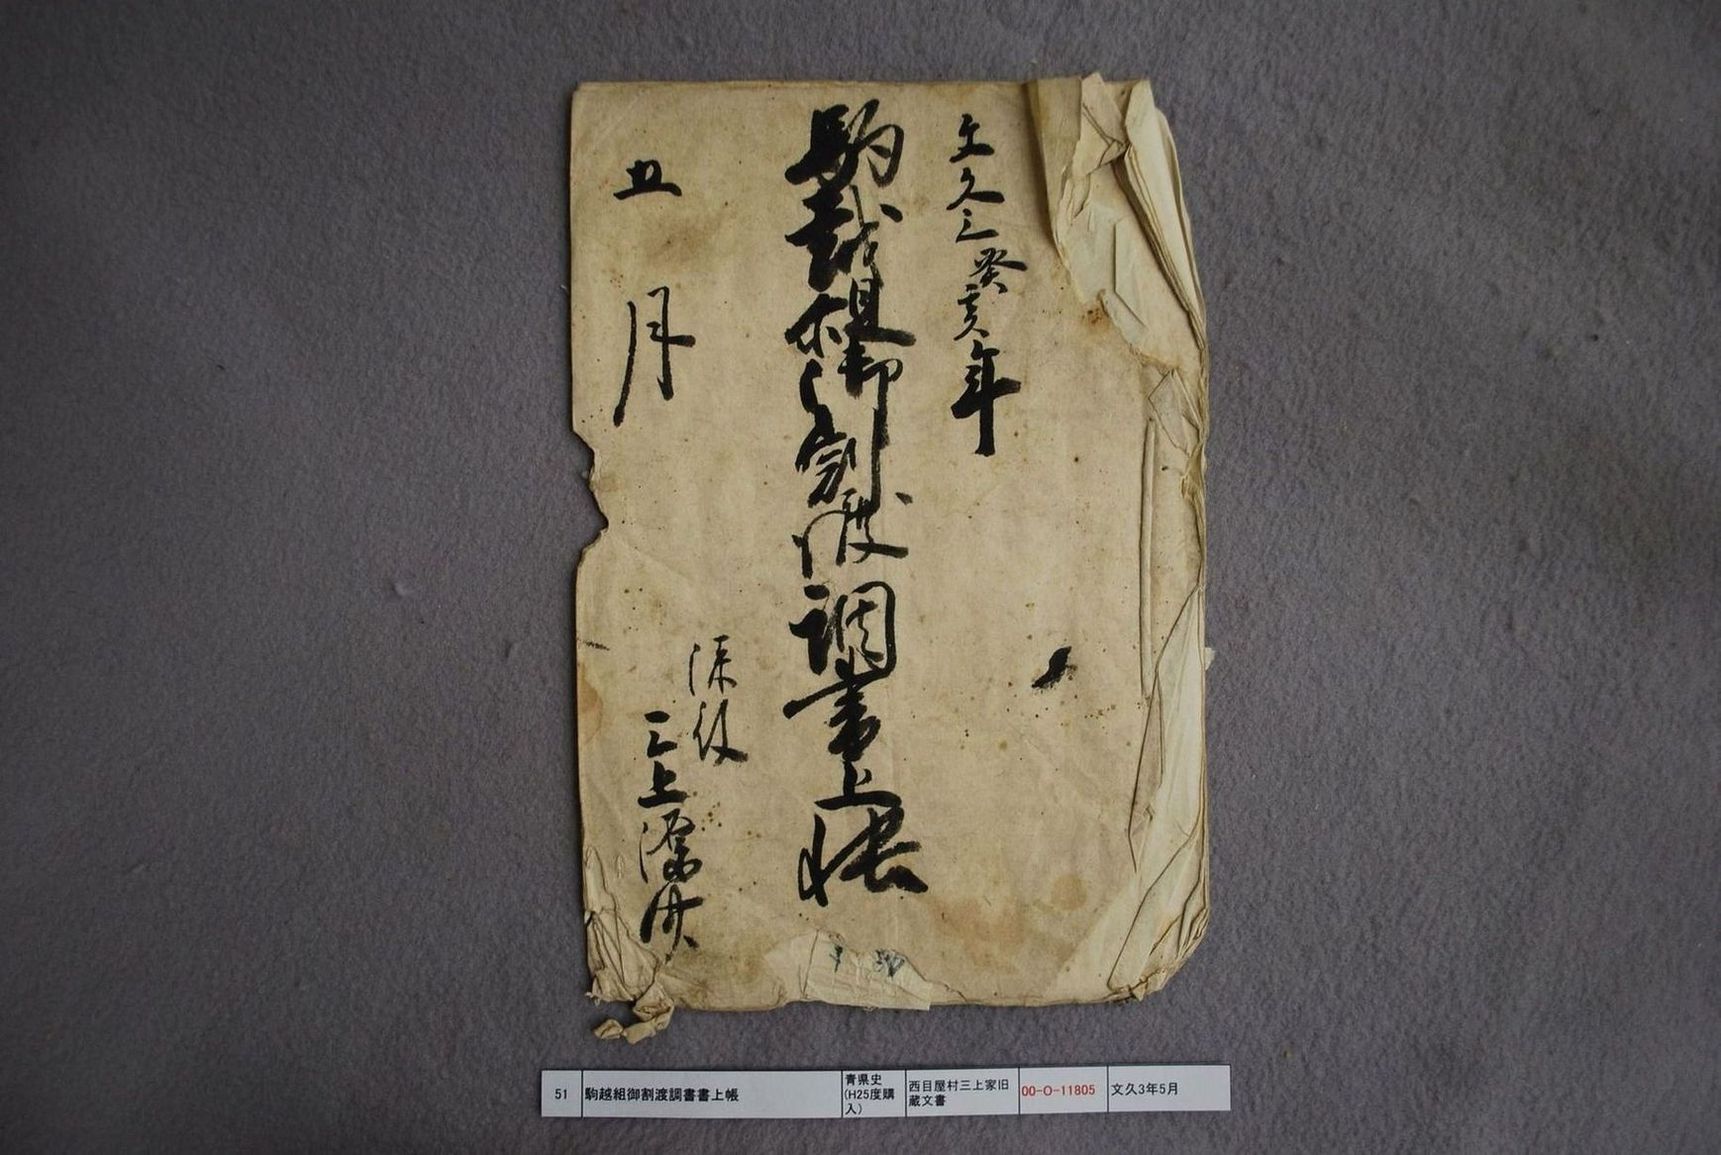 文久三癸亥年
駒越組御割渡調書上帳
五月
漆役
三上
51
駒越組御割渡調書書上帳
青県史
(H25度購
入)
西目屋村三上家旧
蔵文書
00-O-11805
文久3年5月